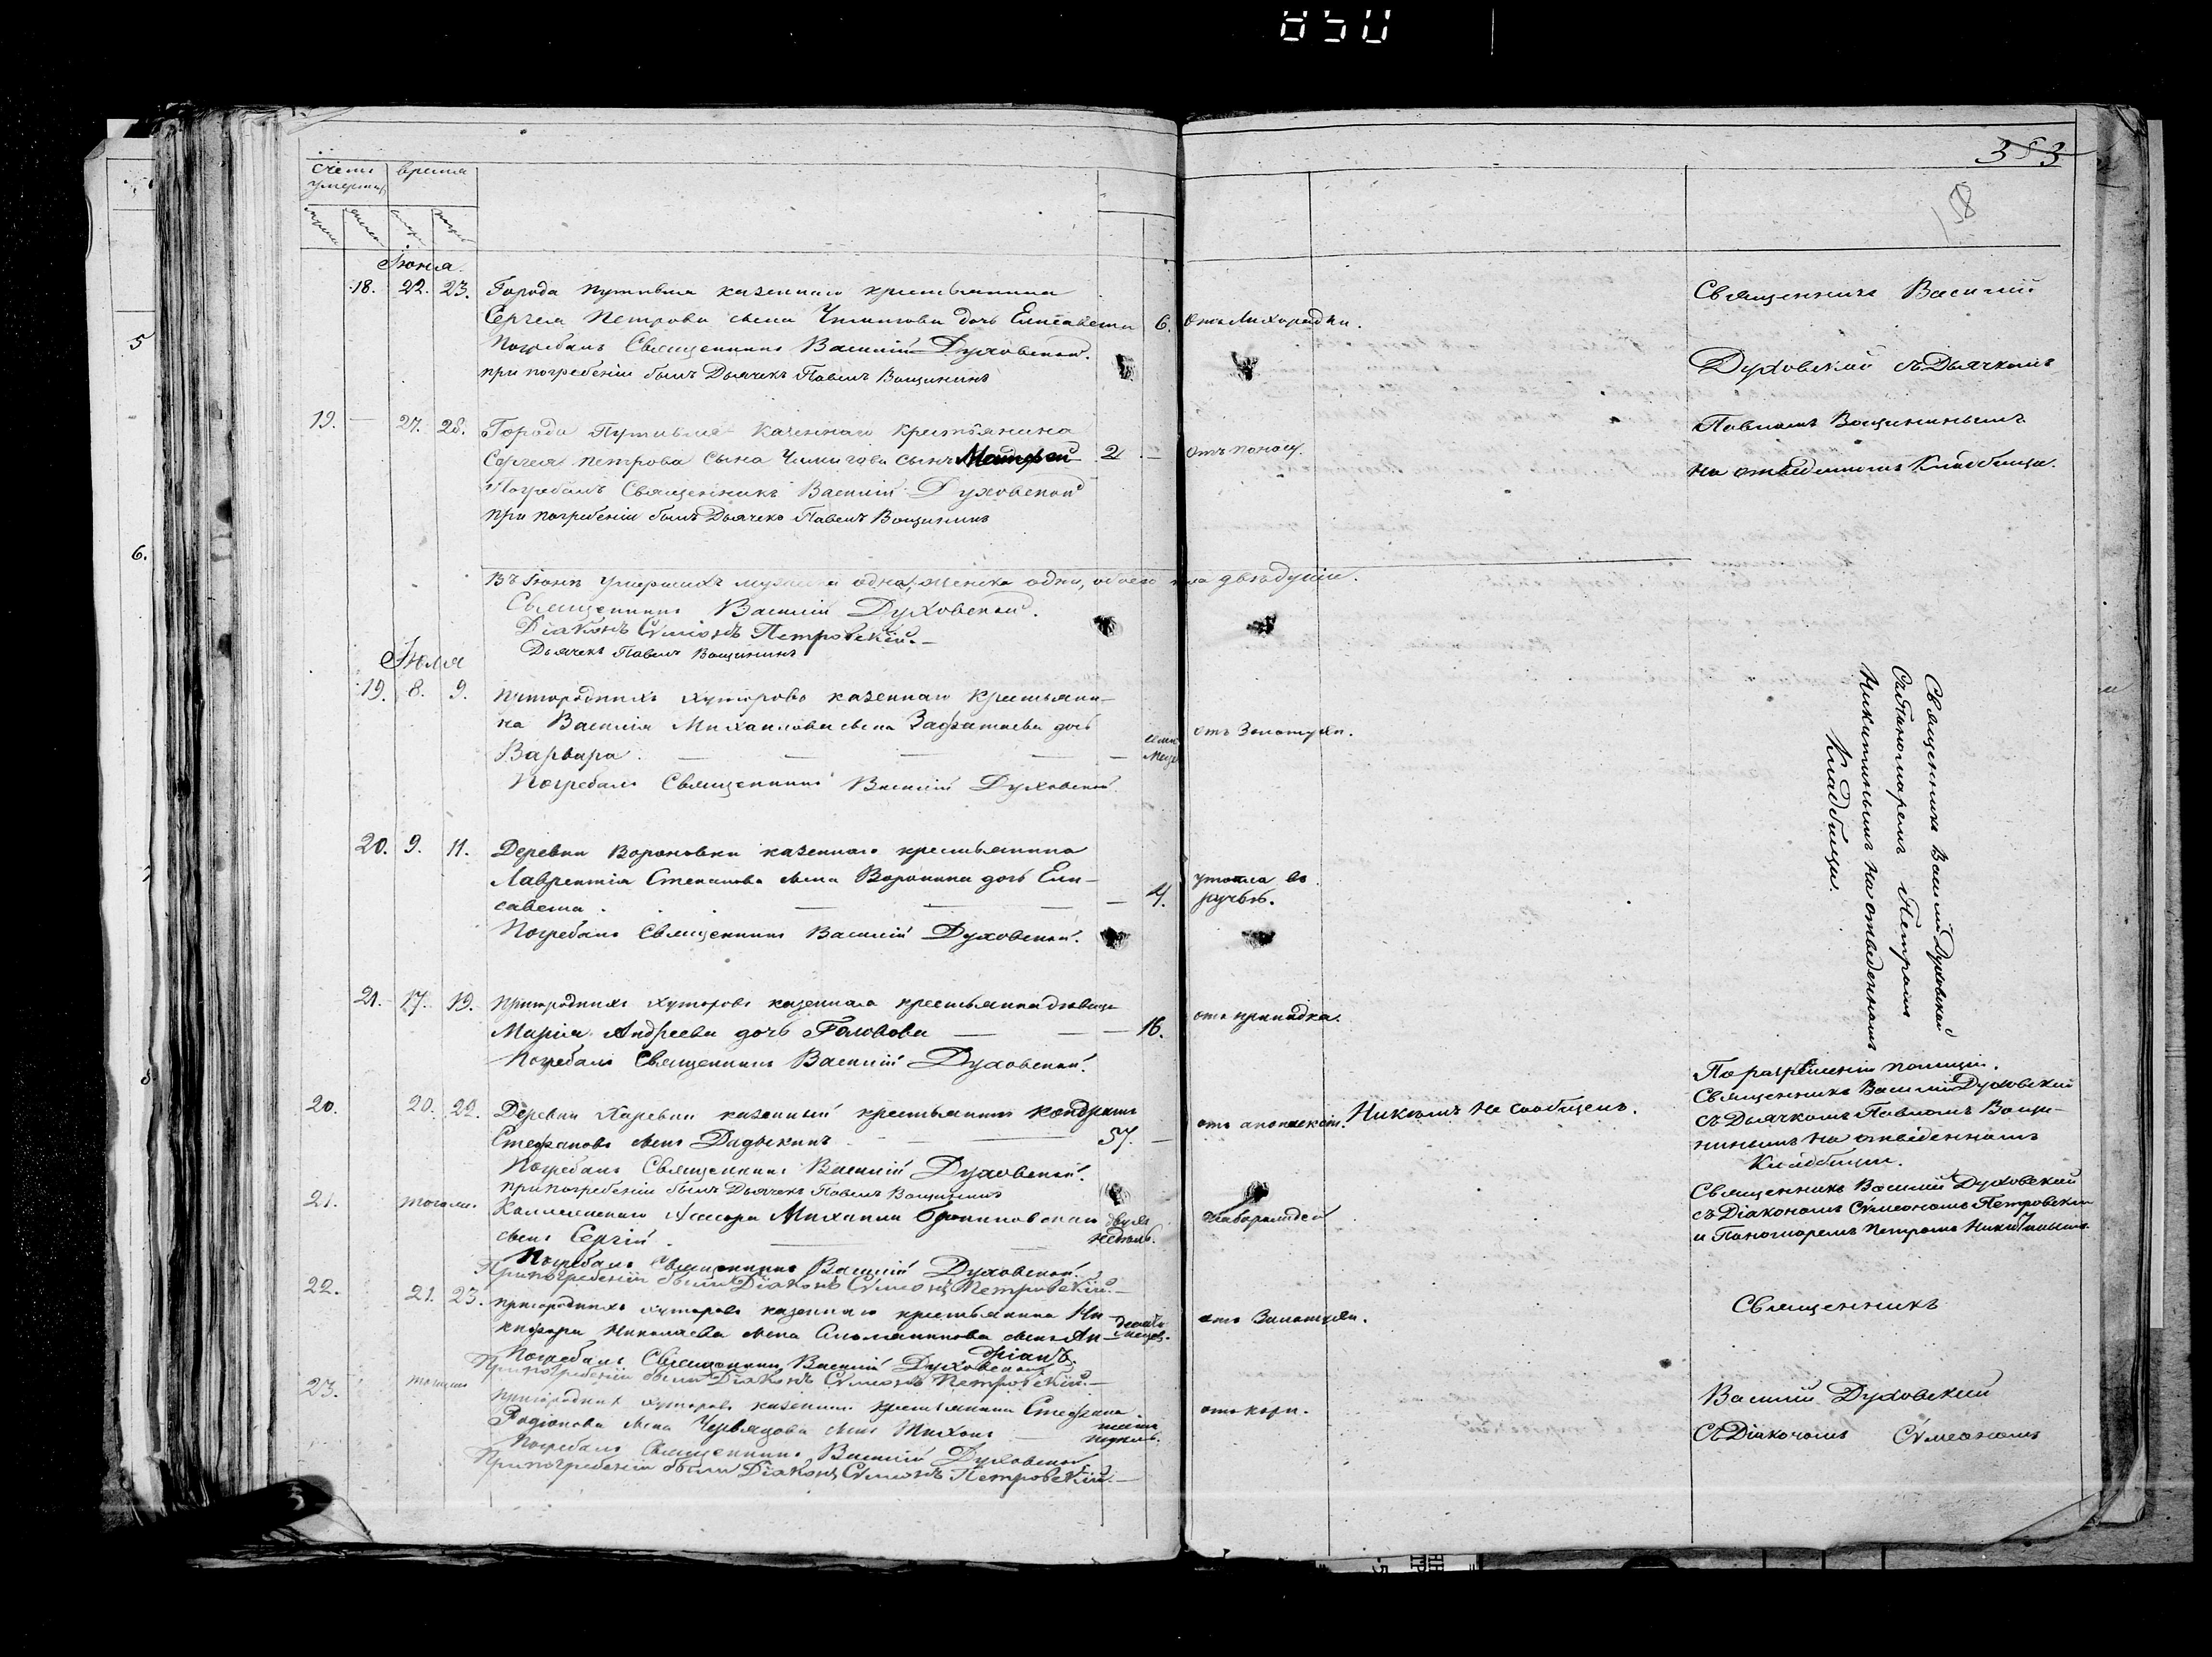 850
353
158
счетъ умершихъ
время
Іюня
18. 22. 23. Города Путивля казеннаго крестьянина
Сергея Петрова сына дочь Елисавета 6. отъ Лихорадки.
Погребалъ Священникъ Василій Духовской.
при погребеніи былъ Дьячекъ Павелъ Вощининъ
Священникъ Василій
Духовской съ Дьячкомъ
Павломъ Вощининымъ
на отведенномъ Кладбищѣ.
19. — 27. 28. Города Путивля Казеннаго Крестьянина
Сергея Петрова Сына сынъ Матфей 2 — отъ поносу.
Погребалъ Священникъ Василій Духовской
при погребеніи былъ Дьячекъ Павелъ Вощининъ
Въ Іюнѣ умершихъ мужеска одна, женска одна, обоего пола двѣ души.
Священникъ Василій Духовской.
Діаконъ Сѵмеонъ Петровскій.
Дьячекъ Павелъ Вощининъ
Іюля
19. 8. 9. Пригородныхъ хуторовъ казеннаго крестьяни-
на Василія Михайлова сына дочь
Варвара. — отъ Золотухи.
Погребалъ Священникъ Василій Духовской
Священникъ Василій Духовской
Съ Пономаремъ Петромъ
Никитинымъ на отведенномъ
Кладбищѣ.
20. 9. 11. Деревни Вороновки казеннаго крестьянина
Лаврентія Степанова сына Воронина дочь Ели-
савета. — 4. утопла въ
ручьѣ.
Погребалъ Священникъ Василій Духовской.
21. 17. 19. Пригородныхъ хуторовъ казеннаго крестьянина дѣвица
Марія Андреева дочь — 16. отъ припадка.
Погребалъ Священникъ Василій Духовской.
20. 20. 22. Деревни казенный крестьянинъ Кондратъ
Стефановъ сынъ 57. — отъ апоплексіи. Никѣмъ не сообщенъ.
Погребалъ Священникъ Василій Духовской.
при погребеніи былъ Дьячекъ Павелъ Вощининъ
По разрѣшенію полиціи.
Священникъ Василій Духовской
съ Дьячкомъ Павломъ Вощи-
нинымъ на отведенномъ
Кладбищѣ.
21. тогоже. Коллежскаго Асесора Михаила двухъ
сынъ Сергій. недѣль.
Погребалъ Священникъ Василій Духовской.
При погребеніи былъ Діаконъ Сѵмеонъ Петровскій.
Священникъ Василій Духовской
съ Діакономъ Сѵмеономъ Петровскимъ
и Пономаремъ Петромъ Никитинымъ
22. 21. 23. Пригородныхъ хуторовъ казеннаго крестьянина Ни-
кифора Николаева сына сынъ Ан-
дріанъ. отъ Золотухи.
Погребалъ Священникъ Василій Духовской
При погребеніи былъ Діаконъ Сѵмеонъ Петровскій.
Священникъ
23. тогоже Пригородныхъ хуторовъ казеннаго крестьянина Стефана
Родіонова сына сынъ Тихонъ отъ кори.
Погребалъ Священникъ Василій Духовской
При погребеніи былъ Діаконъ Сѵмеонъ Петровскій.
Василій Духовской
Съ Діакономъ Сѵмеономъ